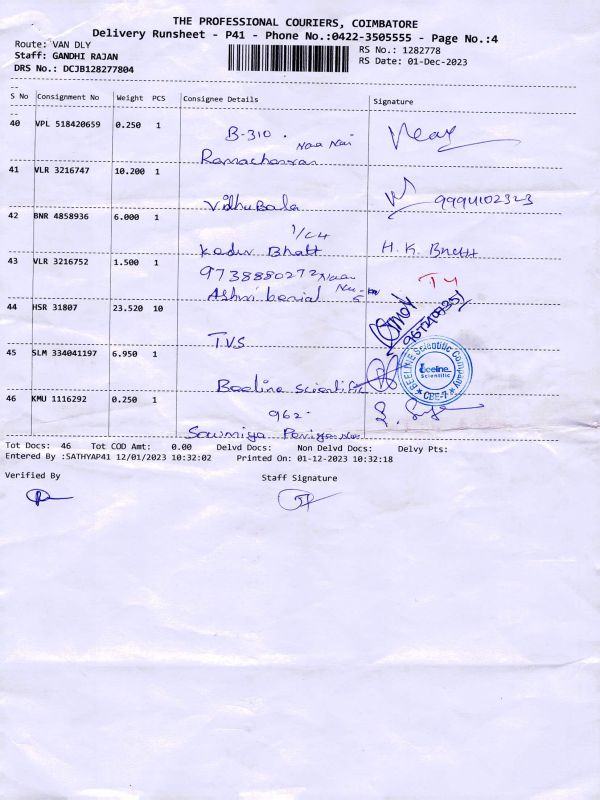 THE PROFESSIONAL COURIERS, COIMBATORE
Delivery Runsheet - P41 - Phone No.:0422-3505555 - Page No.:4
Route: VAN DLY
RS No.: 1282778
Staff: GANDHI RAJAN
RS Date: 01-Dec-2023
DRS No.: DCJB128277804
S No Consignment No Weight PCS Consignee Details Signature
40 VPL 518420659 0.250 1 B-310.
Ramachandran
41 VLR 3216747 10.200 1
Vidhu Bala 9994102323
42 BNR 4858936 6.000 1 1/C4
Kadur Bhatt H.K. Bhatt
43 VLR 3216752 1.500 1 9738880272
T4
44 HSR 31807 23.520 10
TVS
45 SLM 334041197 6.950 1
Beeline Scientific
BEELINE Scientific Company
Beeline
Scientific
* CBE-7 *
46 KMU 1116292 0.250 1 962.
Sowmiya
Tot Docs: 46 Tot COD Amt: 0.00 Delvd Docs: Non Delvd Docs: Delvy Pts:
Entered By :SATHYAP41 12/01/2023 10:32:02 Printed On: 01-12-2023 10:32:18
Verified By Staff Signature